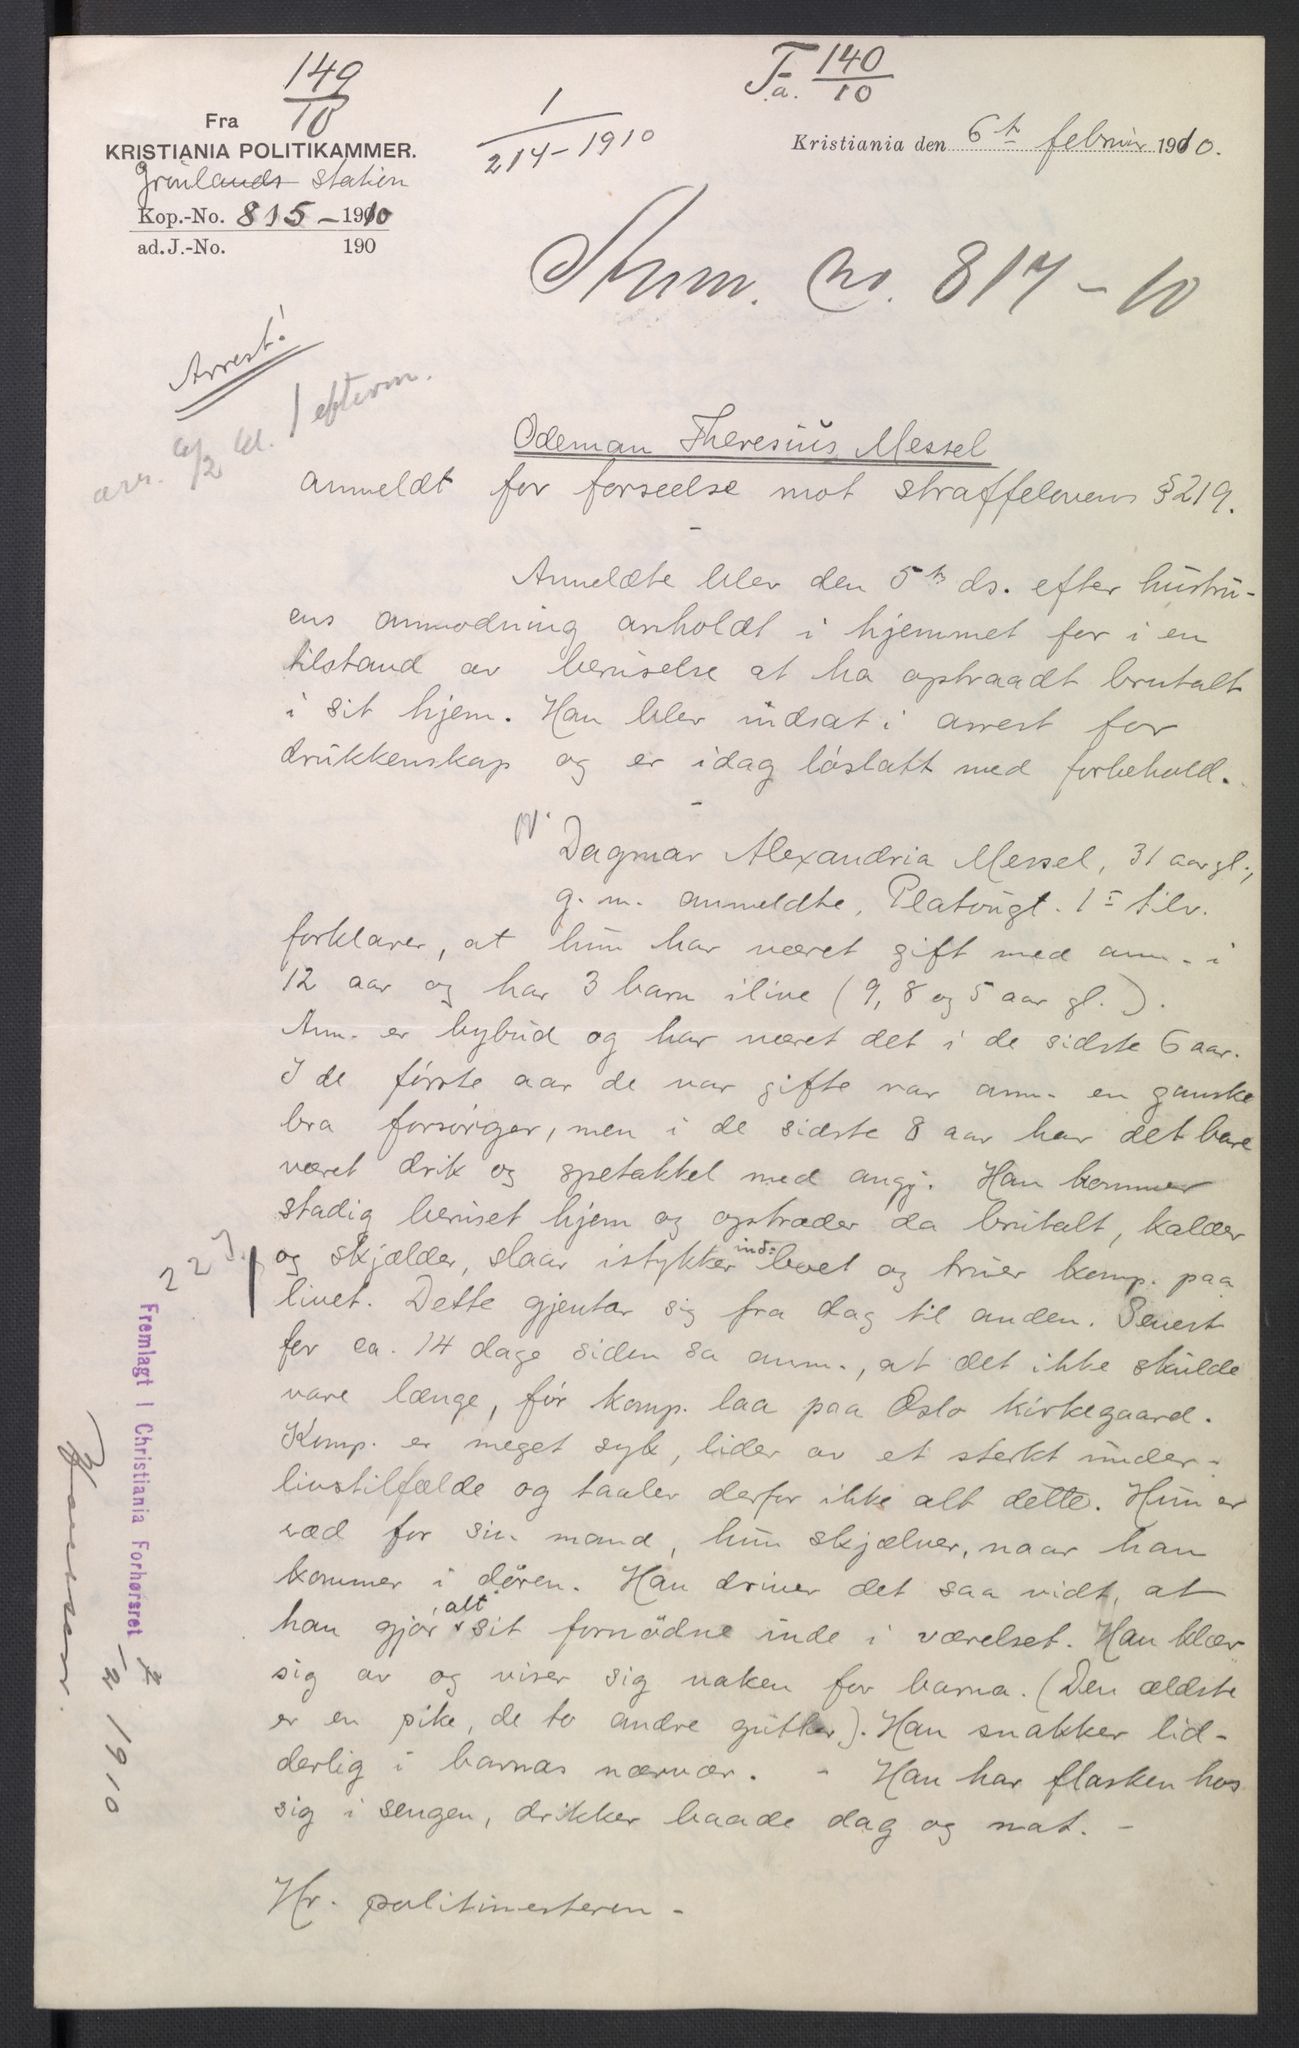 149
10
Fra
KRISTIANIA POLITIKAMMER.
Grønlands station
Kop.-No. 815-1910
ad. J.-No. 190
1
214-1910
F.a. 140
10
Kristiania den 6te februar 1910.
No. 817-10
Arrest!
arr. 6/2 kl. 1 efterm.
Odeman Theresius Messel
anmeldt for forseelse mot straffelovens §219.
Anmeldte blev den 5te ds. efter hustru-
ens anmodning anholdt i hjemmet for i en
tilstand av beruselse at ha optraadt brutalt
i sit hjem. Han blev indsat i arrest for
drukkenskap og er idag løslatt med forbehold.
Dagmar Alexandria Messel, 31 aar gl.,
g. m. anmeldte, Platougt. 1 I tilv.
forklarer, at hun har været gift med anm. i
12 aar og har 3 barn ilive (9, 8 og 5 aar gl.).
Anm. er bybud og har været det i de sidste 6 aar.
I de første aar de var gifte var anm. en ganske
bra forsørger, men i de sidste 8 aar har det bare
været drik og spetakkel med angj. Han kommer
stadig beruset hjem og optræder da brutalt, kalder
og skjælder, slaar istykker indboet og truer komp. paa
livet. Dette gjentar sig fra dag til anden. Senest
for ca. 14 dage siden sa anm., at det ikke skulde
vare længe, før komp. laa paa Oslo kirkegaard.
Komp. er meget syk, lider av et sterkt under-
livstilfælde og taaler derfor ikke alt dette. Hun er
ræd for sin mand, hun skjælver, naar han
kommer i døren. Han driver det saa vidt, at
han gjør alt sit fornødne inde i værelset. Han klær
sig av og viser sig naken for barna. (Den ældste
er en pike, de to andre gutter). Han snakker lid-
derlig i barnas nærvær. - Han har flasken hos
sig i sengen, drikker baade dag og nat. -
Hr. politimesteren -
227
Fremlagt i Christiania Forhørsret 7/2 1910